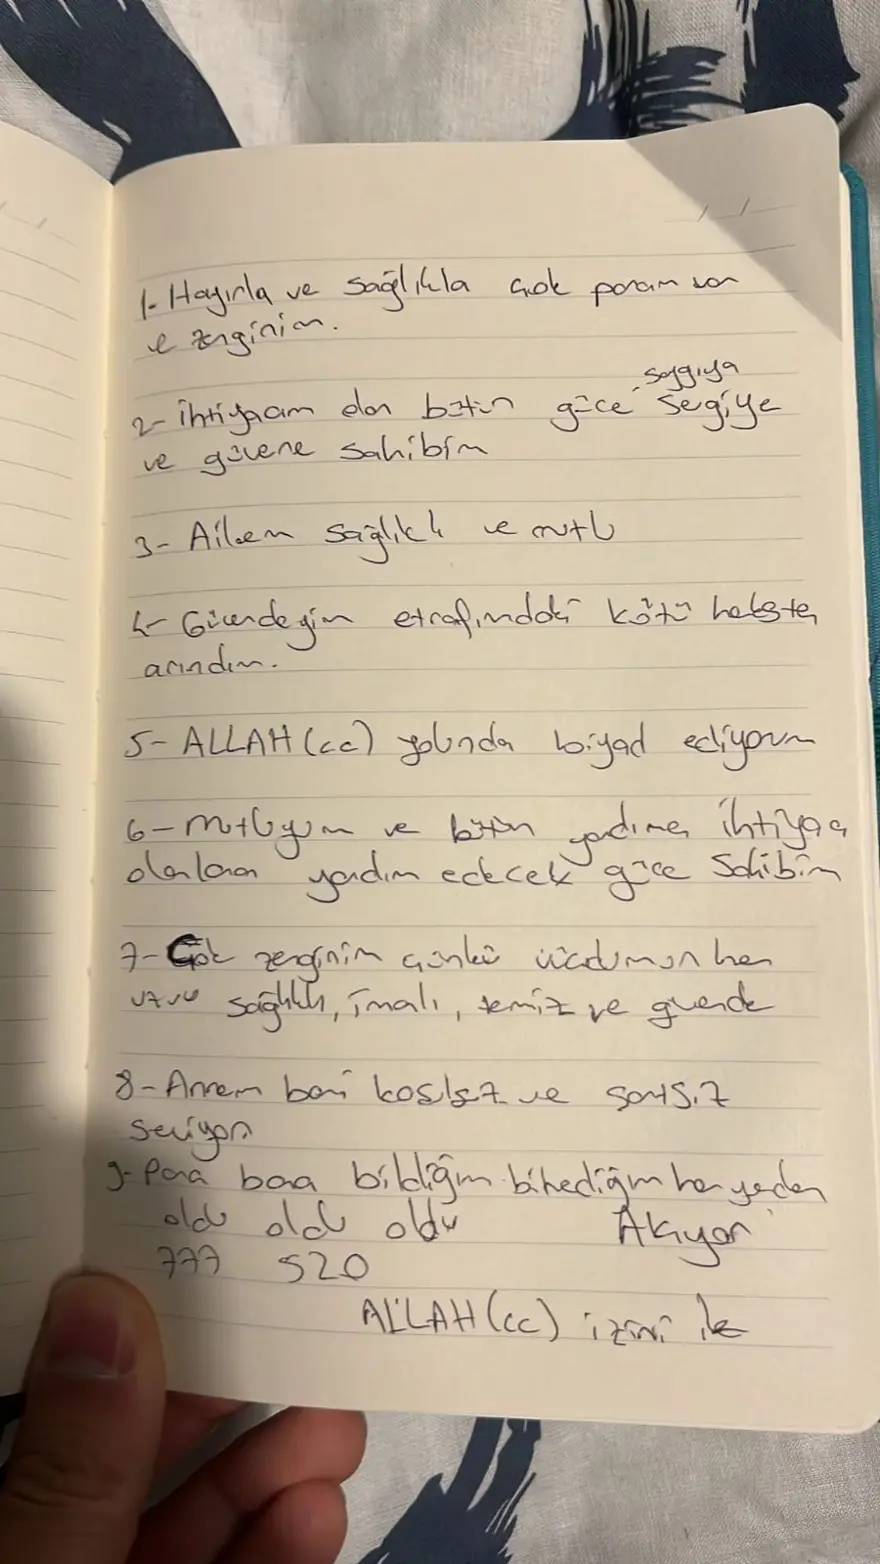 1- Hayırla ve sağlıkla çok param var
e zenginim.
saygıya
2- ihtiyacım olan bütün güce sevgiye
ve güvene sahibim
3- Ailem sağlıklı ve mutlu
4- Güvendeyim etrafımdaki kötü herkesten
arındım.
5- ALLAH (cc) yolunda biyad ediyorum
6- mutluyum ve bütün yardıma ihtiyacı
olanlara yardım edecek güce sahibim
7- Çok zenginim çünkü vücudumun her
uzvu sağlıklı, imalı, temiz ve güvende
8- Annem beni koşulsuz ve şartsız
seviyor
9- Para bana bildiğim bilmediğim her yerden
oldu oldu oldu Akıyor
777 520
ALLAH (cc) izini ile